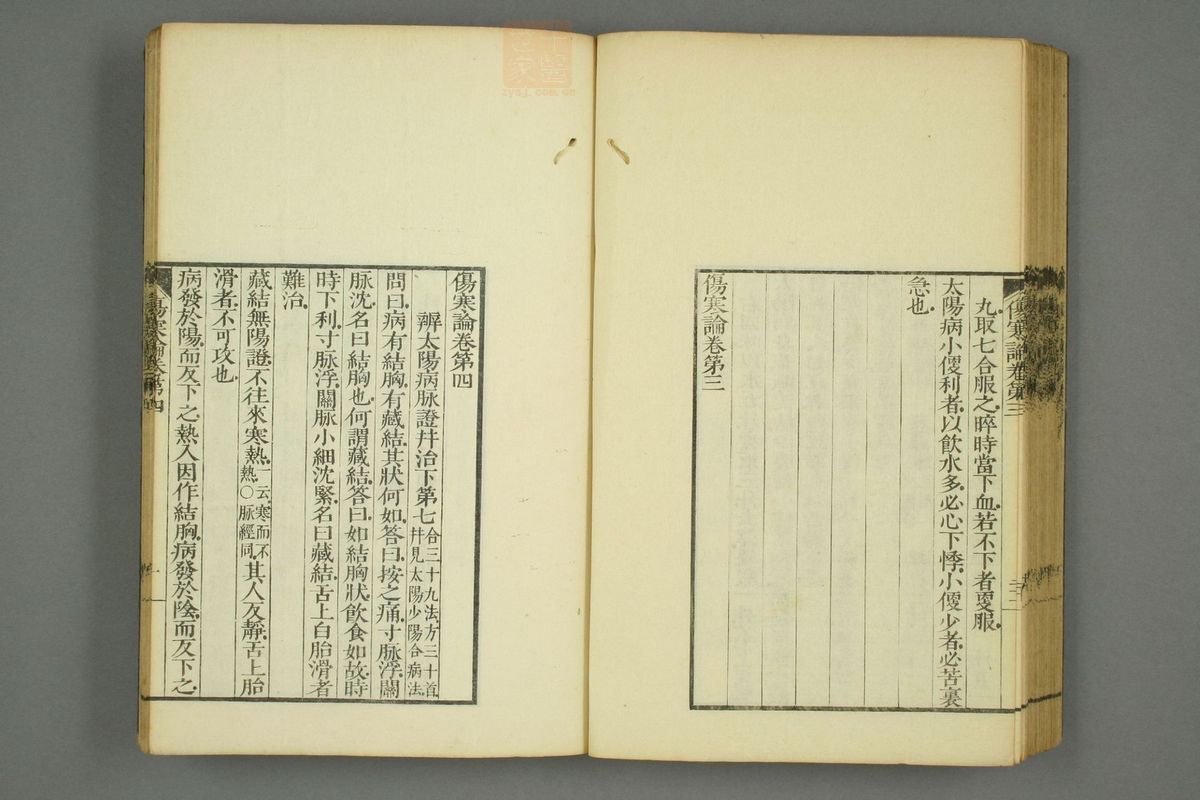 傷寒論卷第三
丸取七合服之晬時當下血若不下者更服
太陽病小便利者以飲水多必心下悸小便少者必苦裏
急也
傷寒論卷第三
傷寒論卷第四
辨太陽病脉證幷治下第七合三十九法方三十首
幷見太陽少陽合病法
問曰病有結胸有藏結其狀何如答曰按之痛寸脉浮關
脉沈名曰結胸也何謂藏結答曰如結胸狀飲食如故時
時下利寸脉浮關脉小細沈緊名曰藏結舌上白胎滑者
難治
藏結無陽證不往來寒熱一云寒而不
熱○脉經同其人反靜舌上胎
滑者不可攻也
病發於陽而反下之熱入因作結胸病發於陰而反下之
傷寒論卷第四
zysj.com.cn